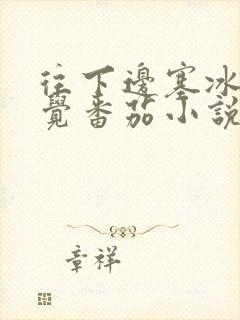 往下邊塞冰
覺番茄小說
章祥